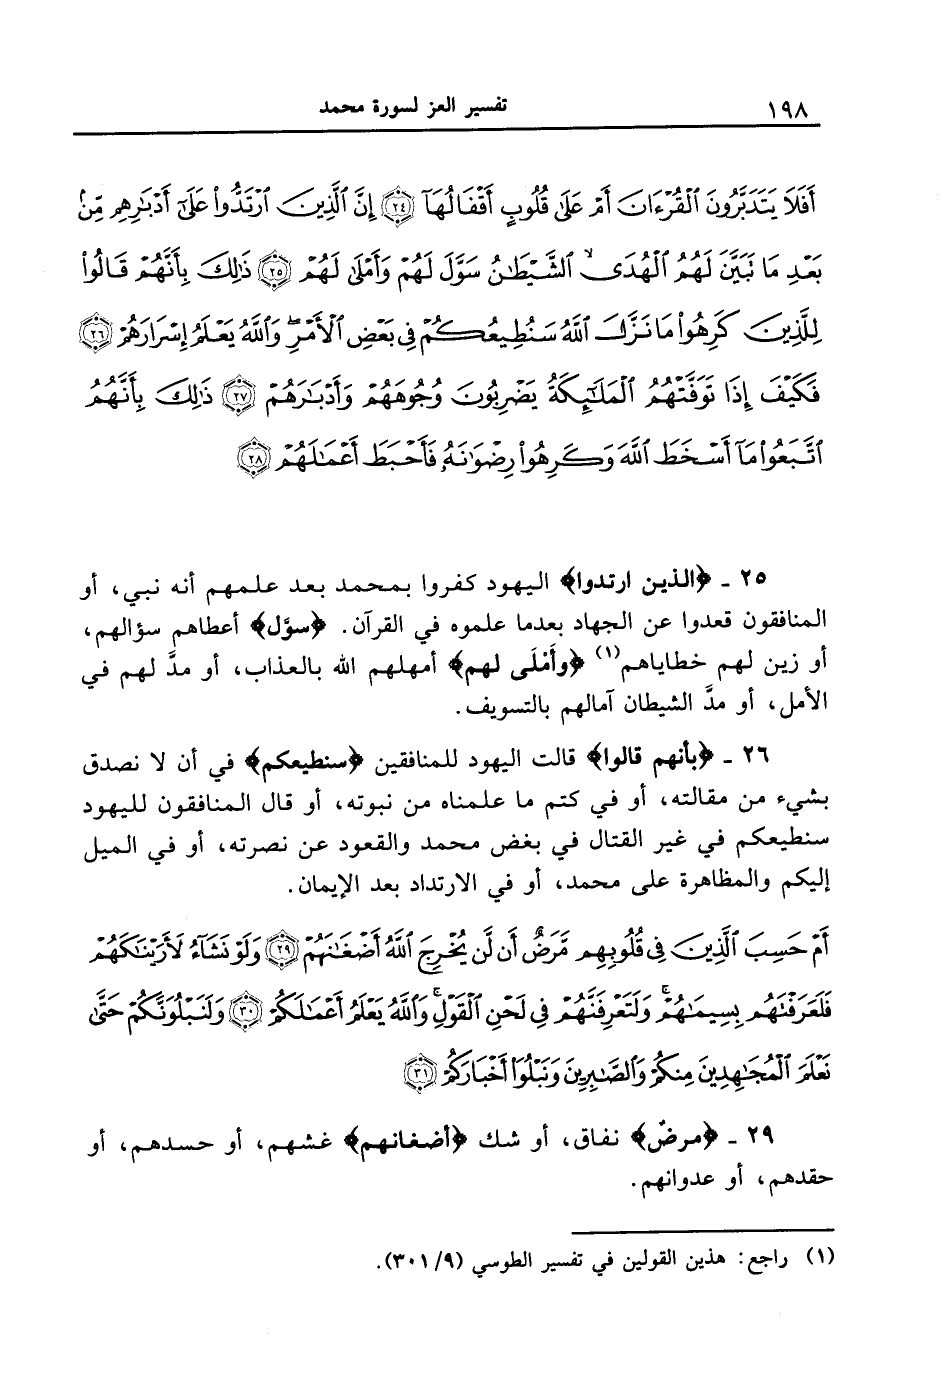 ١٩٨ تفسير العز لسورة محمد
أَفَلَا يَتَدَبَّرُونَ ٱلْقُرْءَانَ أَمْ عَلَىٰ قُلُوبٍ أَقْفَالُهَآ ﴿٢٤﴾ إِنَّ ٱلَّذِينَ ٱرْتَدُّوا۟ عَلَىٰٓ أَدْبَـٰرِهِم مِّنۢ
بَعْدِ مَا تَبَيَّنَ لَهُمُ ٱلْهُدَى ۙ ٱلشَّيْطَـٰنُ سَوَّلَ لَهُمْ وَأَمْلَىٰ لَهُمْ ﴿٢٥﴾ ذَٰلِكَ بِأَنَّهُمْ قَالُوا۟
لِلَّذِينَ كَرِهُوا۟ مَا نَزَّلَ ٱللَّهُ سَنُطِيعُكُمْ فِى بَعْضِ ٱلْأَمْرِ ۖ وَٱللَّهُ يَعْلَمُ إِسْرَارَهُمْ ﴿٢٦﴾
فَكَيْفَ إِذَا تَوَفَّتْهُمُ ٱلْمَلَـٰٓئِكَةُ يَضْرِبُونَ وُجُوهَهُمْ وَأَدْبَـٰرَهُمْ ﴿٢٧﴾ ذَٰلِكَ بِأَنَّهُمُ
ٱتَّبَعُوا۟ مَآ أَسْخَطَ ٱللَّهَ وَكَرِهُوا۟ رِضْوَٰنَهُۥ فَأَحْبَطَ أَعْمَـٰلَهُمْ ﴿٢٨﴾
٢٥ ـ ﴿الذين ارتدوا﴾ اليهود كفروا بمحمد بعد علمهم أنه نبي، أو
المنافقون قعدوا عن الجهاد بعدما علموه في القرآن. ﴿سوَّل﴾ أعطاهم سؤالهم،
أو زين لهم خطاياهم(١) ﴿وأَمْلَى لهم﴾ أمهلهم الله بالعذاب، أو مدَّ لهم في
الأمل، أو مدَّ الشيطان آمالهم بالتسويف.
٢٦ ـ ﴿بأنهم قالوا﴾ قالت اليهود للمنافقين ﴿سنطيعكم﴾ في أن لا نصدق
بشيء من مقالته، أو في كتم ما علمناه من نبوته، أو قال المنافقون لليهود
سنطيعكم في غير القتال في بغض محمد والقعود عن نصرته، أو في الميل
إليكم والمظاهرة على محمد، أو في الارتداد بعد الإيمان.
أَمْ حَسِبَ ٱلَّذِينَ فِى قُلُوبِهِم مَّرَضٌ أَن لَّن يُخْرِجَ ٱللَّهُ أَضْغَـٰنَهُمْ ﴿٢٩﴾ وَلَوْ نَشَآءُ لَأَرَيْنَـٰكَهُمْ
فَلَعَرَفْتَهُم بِسِيمَـٰهُمْ ۚ وَلَتَعْرِفَنَّهُمْ فِى لَحْنِ ٱلْقَوْلِ ۚ وَٱللَّهُ يَعْلَمُ أَعْمَـٰلَكُمْ ﴿٣٠﴾ وَلَنَبْلُوَنَّكُمْ حَتَّىٰ
نَعْلَمَ ٱلْمُجَـٰهِدِينَ مِنكُمْ وَٱلصَّـٰبِرِينَ وَنَبْلُوَا۟ أَخْبَارَكُمْ ﴿٣١﴾
٢٩ ـ ﴿مرضٌ﴾ نفاق، أو شك ﴿أضغانهم﴾ غشهم، أو حسدهم، أو
حقدهم، أو عدوانهم.
(١) راجع: هذين القولين في تفسير الطوسي (٣٠١/٩).